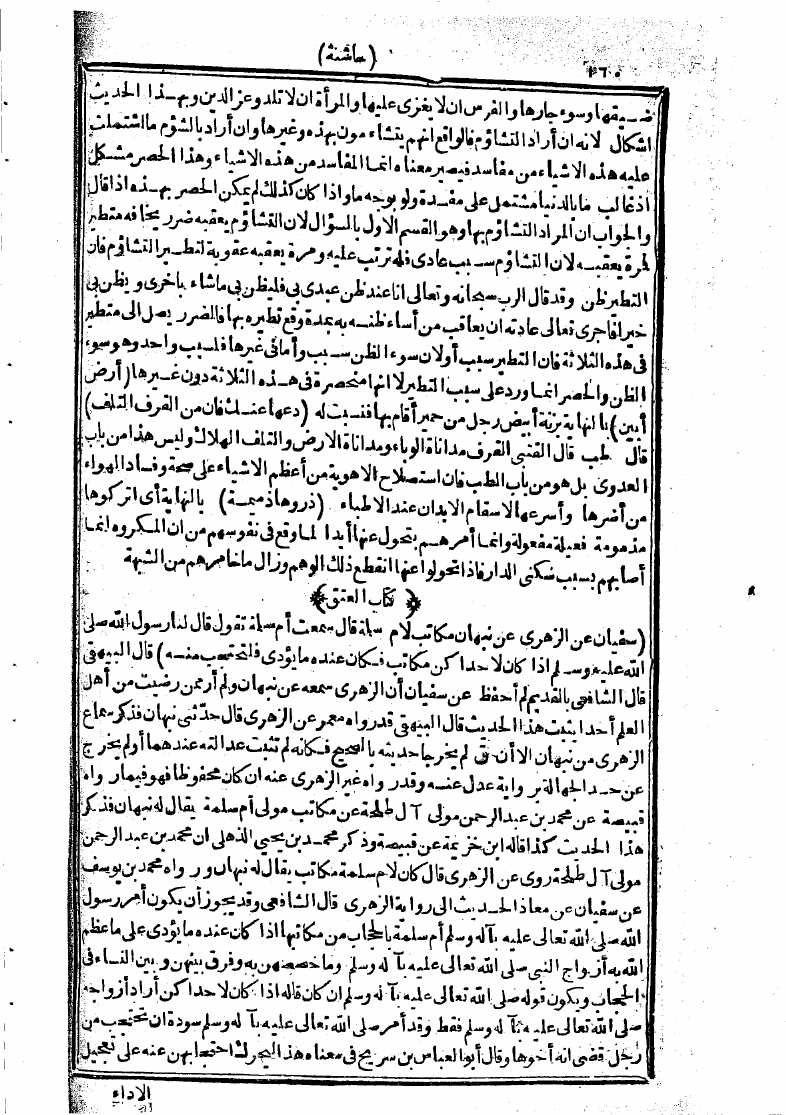 (حاشية)
ضـيقها وسوء جارها والفرس ان لا يغزى عليها والمرأة ان لا تلد وعز الدين وبهذا الحديث
اشكال لانه ان أراد التشاؤم فالواقع انهم يتشاءمون بهذه وغيرها وان أراد بالشؤم ما اشتملت
عليه هذه الاشياء من مفاسد فيصير معناه انما المفاسد من هذه الاشياء وهذا الحصر مشكل
اذ غالب ما بالدنيا مشتمل على مفسدة ولو بوجه ما واذا كان كذلك لم يمكن الحصر بهذه اذا قال
والجواب ان المراد التشاؤم بها وهو القسم الاول بالسؤال لان التشاؤم يعقبه ضرر يخافه متطير
لمرة يعقبه لان التشاؤم سبب عادى فله ترتب عليه ومرة يعقبه عقوبة لتطير التشاؤم فان
التطير ظن وقد قال الرب سبحانه وتعالى انا عند ظن عبدى بى فليظن بى ماشاء باخرى ويظن بى
خيرا فاجرى تعالى عادته ان يعاقب من أساء ظنه به بمدة وقع تطيره بها فالضرر يصل الى متطير
فى هذه الثلاثة فان التطير سبب أولان سوء الظن سبب وأما فى غيرها فلسبب واحد وهو سوء
الظن والحصر انما ورد على سبب التطير لا انها منحصرة فى هذه الثلاثة دون غيرها (أرض
أبين) بالنهاية بزنة أبيض رجل من حمير أقام بها فنسبت له (دعها عنك فان من القرف التلف)
قال طب قال القتبى القرف مداناة الوباء ومداناة الارض والتلف الهلاك وليس هذا من باب
العدوى بل هو من باب الطب فان استصلاح الاهوية من أعظم الاشياء على صحة وفساد الهواء
من أضرها وأسرعها لاسقام الابدان عند الاطباء (ذروها ذميمة) بالنهاية أى اتركوها
مذمومة فعيلة مفعولة وانما أمرهم بتحول عنها أبدا لما وقع فى نفوسهم من ان المكروه انما
أصابهم بسبب سكنى الدار فاذا تحولوا عنها انقطع ذلك الوهم وزال ما خامرهم من الشبهة
﴿كتاب العتق﴾
(سفيان عن الزهرى عن نبهان مكاتب لام سلمة قال سمعت أم سلمة تقول قال لنا رسول الله صلى
الله عليه وسلم اذا كان لاحداكن مكاتب فكان عنده ما يؤدى فلتحتجب منه) قال البيهقى
قال الشافعى بالقديم لم أحفظ عن سفيان أن الزهرى سمعه عن نبهان ولم أر من رضيت من أهل
العلم أحدا يثبت هذا الحديث قال البيهقى قد رواه معمر عن الزهرى قال حدثنى نبهان فذكر سماع
الزهرى من نبهان الا أن ق لم يخرجا حديثه بالصحيح فكانه لم تثبت عدالته عندهما أو لم يخرج
عن حد الجهالة برواية عدل عنه وقد رواه غير الزهرى عنه ان كان محفوظا فهو فيما رواه
قبيصة عن محمد بن عبد الرحمن مولى آل طلحة عن مكاتب مولى أم سلمة يقال له نبهان فذكر
هذا الحديث كذا قاله ابن خزيمة عن قبيصة وذكر محمد بن يحيى الذهلى ان محمد بن عبد الرحمن
مولى آل طلحة روى عن الزهرى قال كان لام سلمة مكاتب يقال له نبهان ورواه محمد بن يوسف
عن سفيان عن معاذ الحديث الى رواية الزهرى قال الشافعى وقد يجوز أن يكون أمر رسول
الله صلى الله تعالى عليه بآله وسلم أم سلمة بالحجاب من مكاتبها اذا كان عنده ما يؤدى على ما عظم
الله به أزواج النبى صلى الله تعالى عليه بآله وسلم وما خصصهن به وفرق بينهن وبين النساء فى
الحجاب ويكون قوله صلى الله تعالى عليه بآله وسلم ان كان قاله اذا كان لاحداكن أراد أزواجه
صلى الله تعالى عليه بآله وسلم فقط وقد أمر صلى الله تعالى عليه بآله وسلم سودة ان تحتجب من
رجل قضى انه أخوها وقال أبو العباس بن سريج فى معناه هذا ليحرك احتجابهن عنه على تعجيل
الاداء